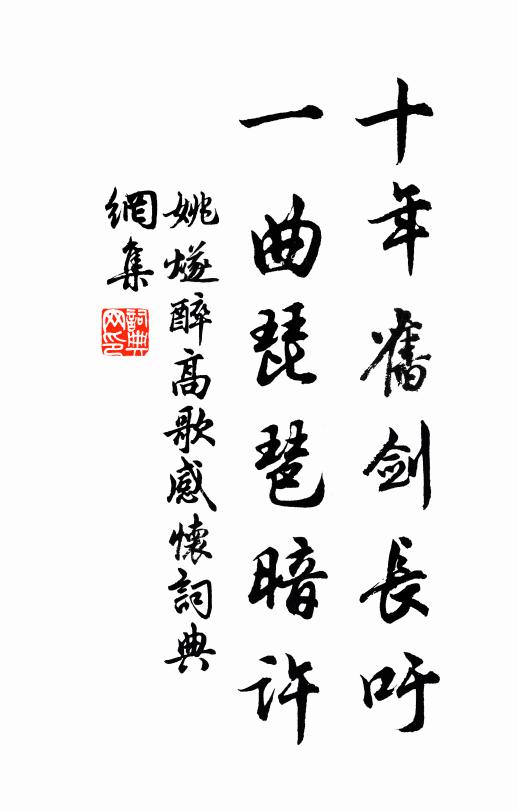 十年舊劍長吁
一曲琵琶暗許
姚燧醉高歌感懷詞典
網集
詞典网印